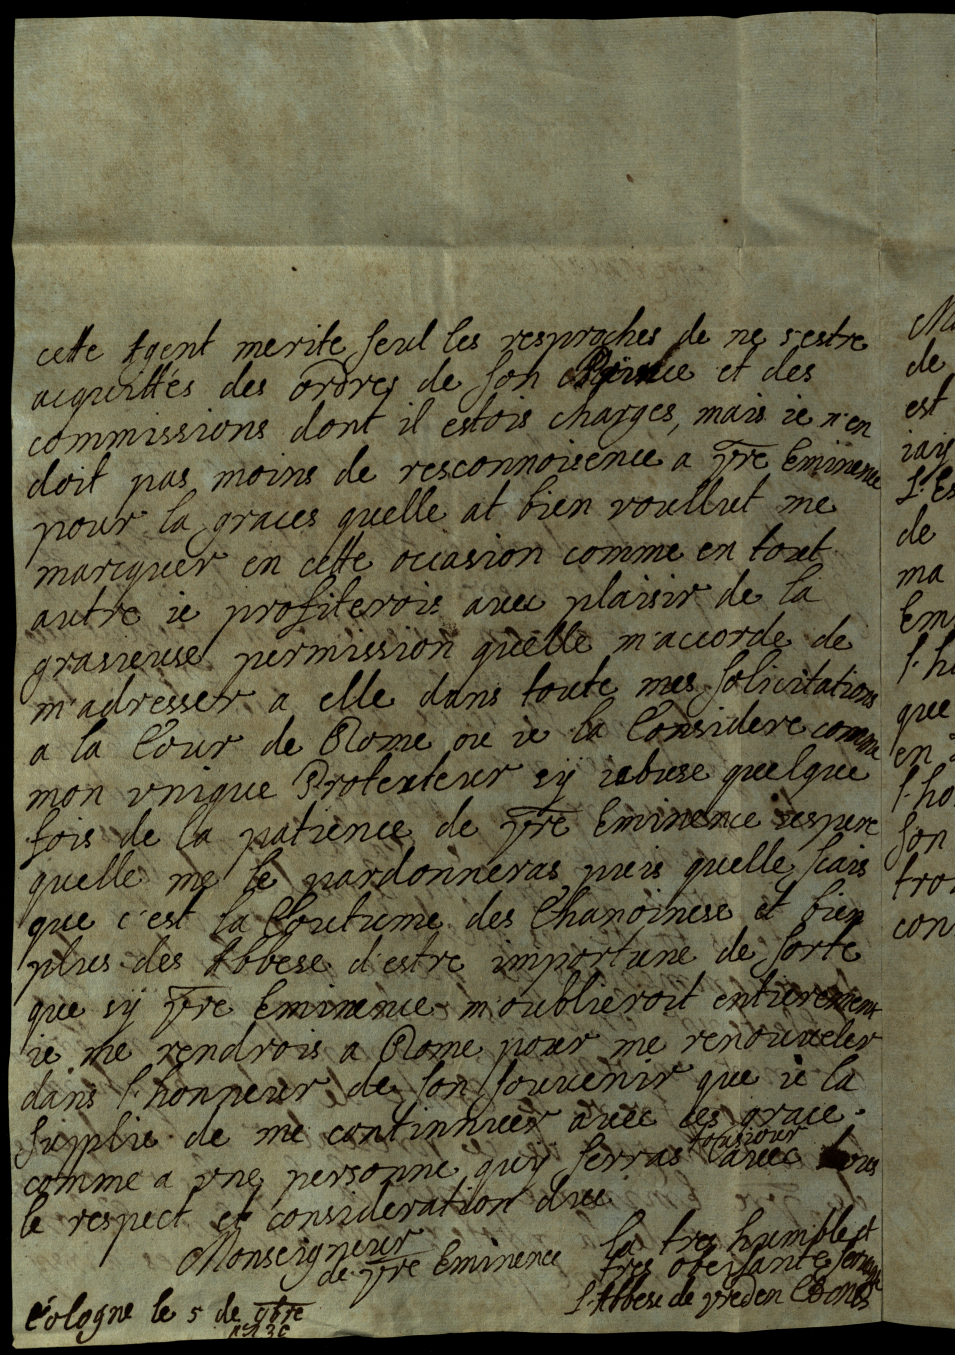 cette Agent merite seul les resproches de ne s'estre
acquittés des ordres de son Prince et des
commissions dont il estois charges, mais ie n'en
doit pas moins de resconnoisence a vre Eminence
pour la graces quelle at bien voullut me
marquer en cette occasion comme en tout
autre ie profiterois avec plaisir de la
grasieuse permission quelle m'accorde de
m'adresser a elle dans toute mes solicitations
a la Cour de Rome ou ie la Considere comme
mon vnique Protecteur sÿ iabuse quelque
fois de la patience de vre Eminence iespere
quelle me le pardonneras puis quelle scais
que c'est la Coutume des Chanoinese et bien
plus des Abbese d'estre importune de sorte
que sÿ vre Eminence m'oublieroit entierement
ie me rendrois a Rome pour me renouveler
dans l'honneur de son souvenir que ie la
suplie de me continuer avec ces grace
comme a vne personne quÿ serras tousiour avec
le respect et consideration due
Monseigneur
de vre Eminence
la tres humble et
tres obeisante
l'Abbese de vreden
Cologne le 5 de
Ma
de
est
iay
l'Es
de
ma
Em
l'ho
que
en
l'ho
son
tro
con